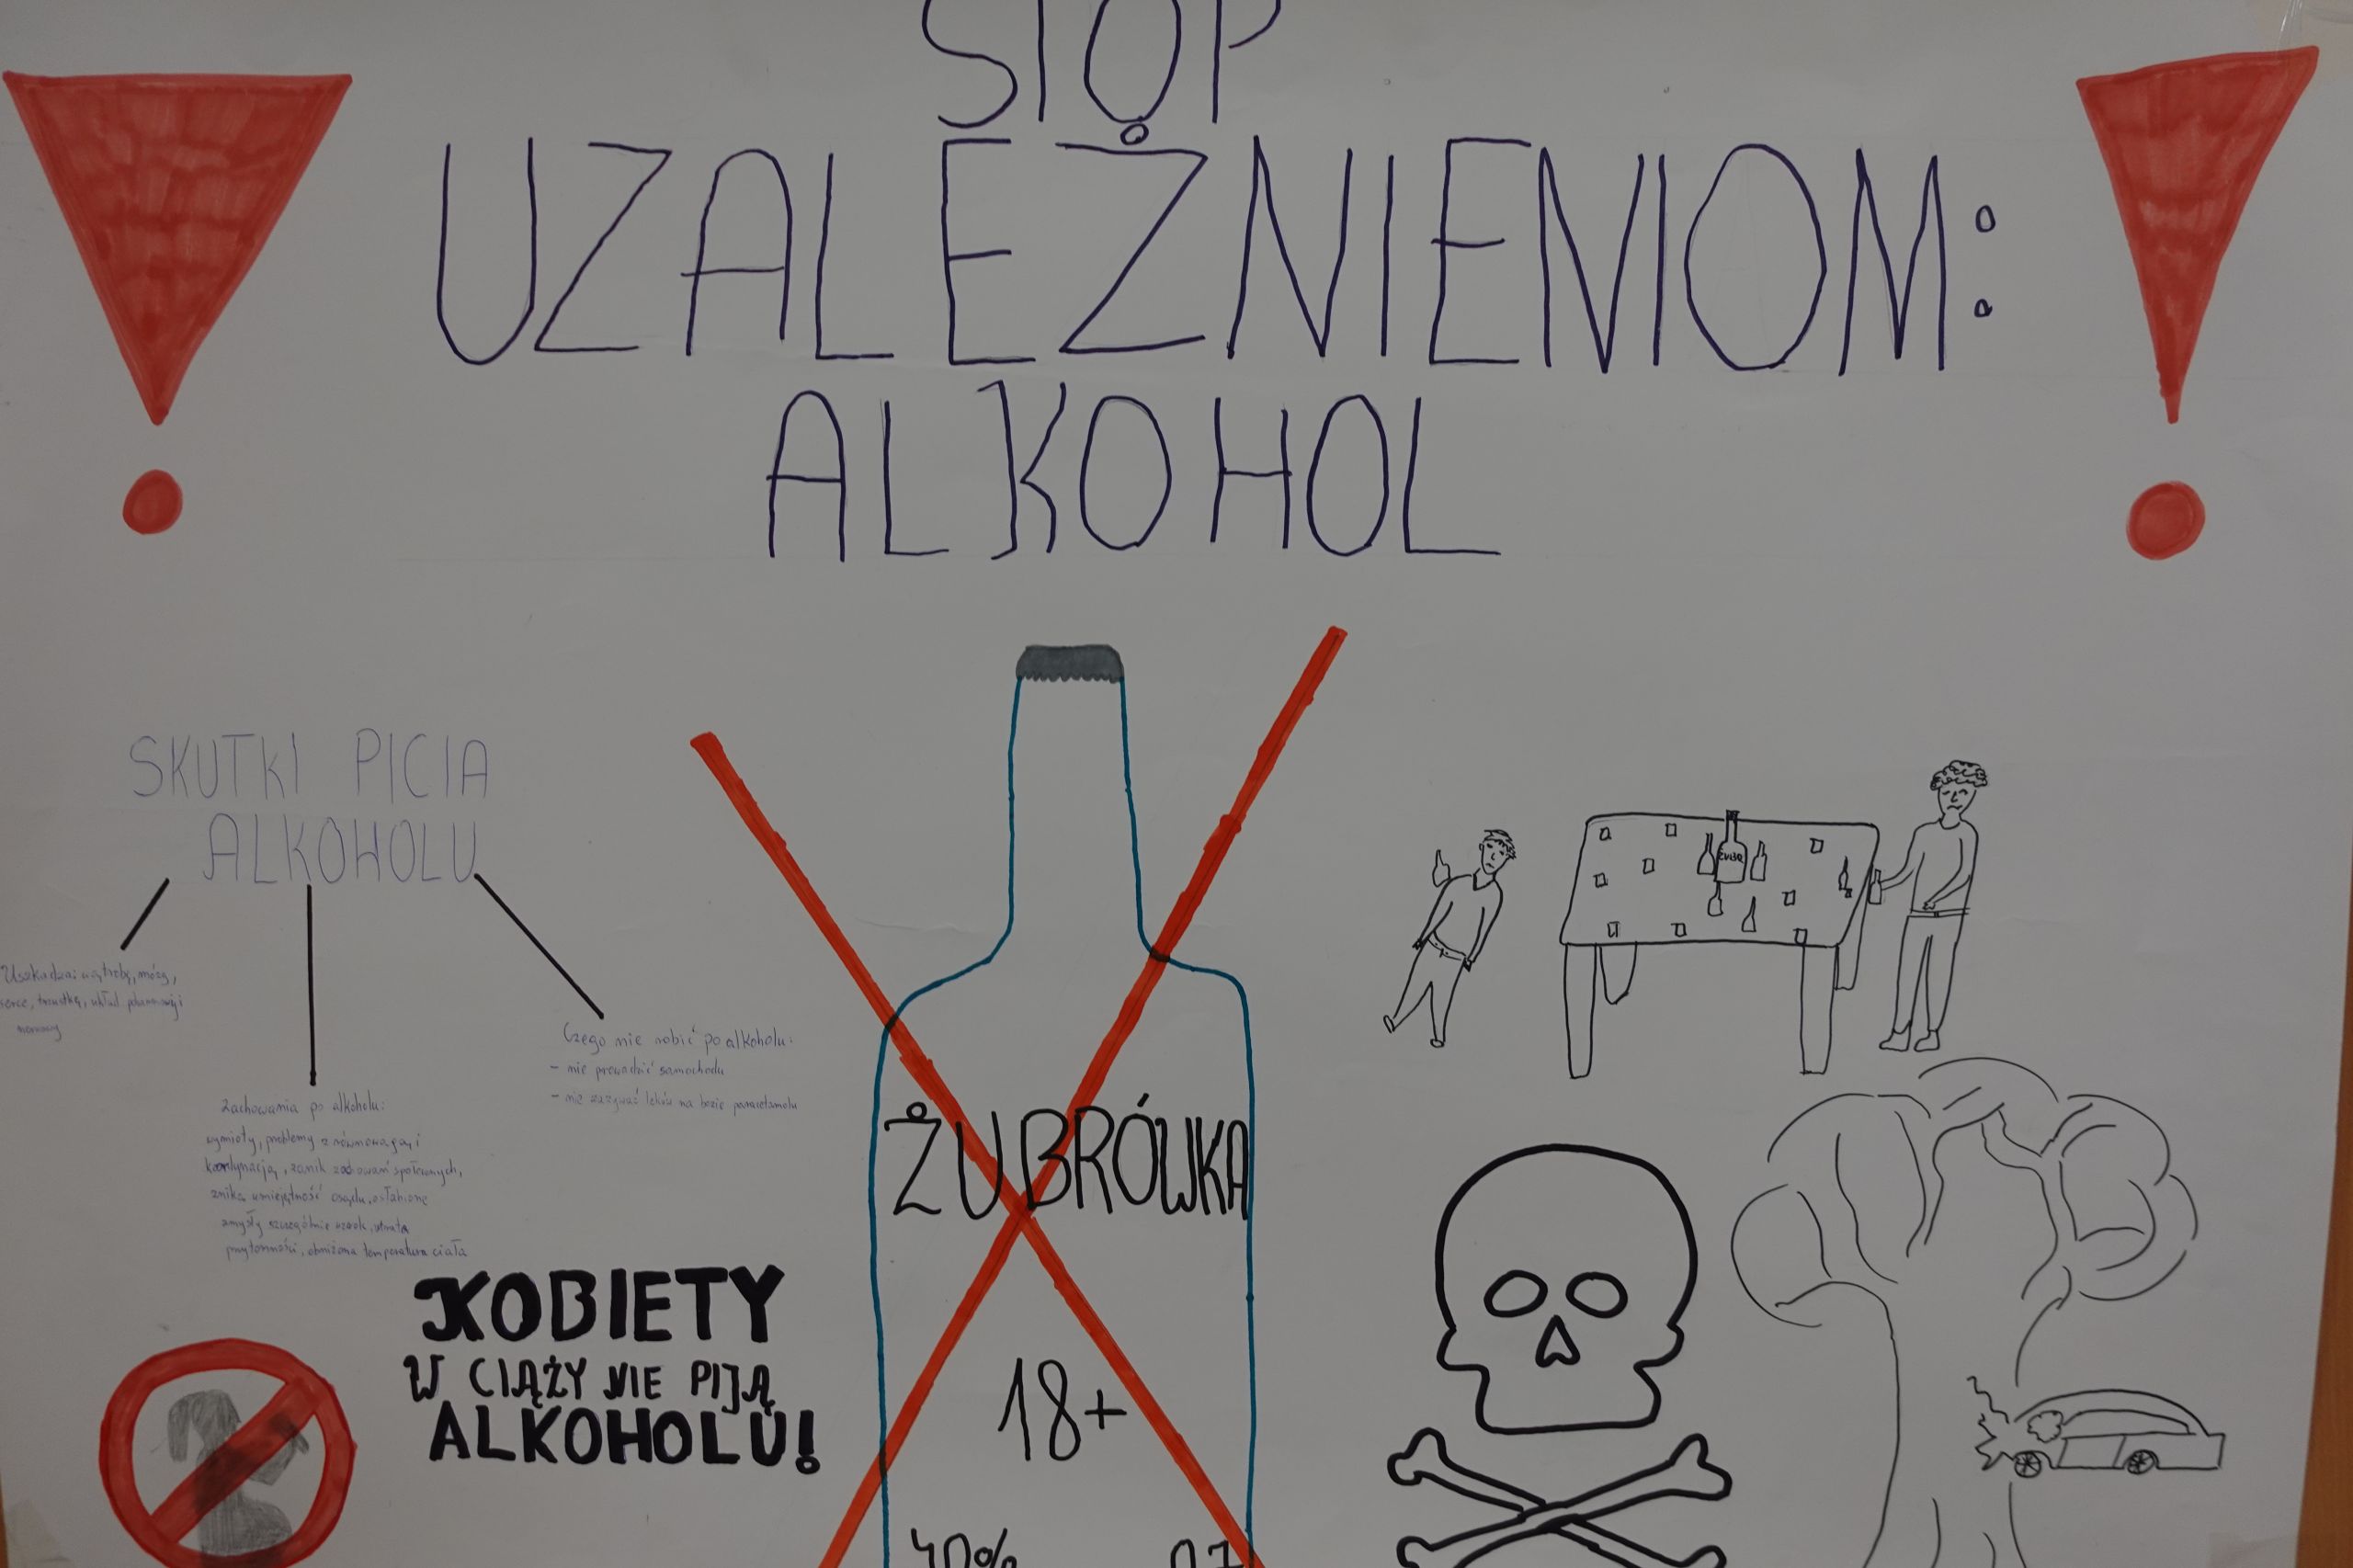 STOP
UZALEŻNIENIOM:
ALKOHOL
SKUTKI PICIA
ALKOHOLU
Uszkadza: wątrobę, mózg,
serce, trzustkę, układ pokarmowy i
nerwowy
Zachowania po alkoholu:
wymioty, problemy z równowagą i
koordynacją, zanik zachowań społecznych,
znika umiejętność osądu, osłabione
zmysły szczególnie wzrok, utrata
przytomności, obniżona temperatura ciała
Czego nie robić po alkoholu:
- nie prowadzić samochodu
- nie zażywać leków na bazie paracetamolu
KOBIETY
W CIĄŻY NIE PIJĄ
ALKOHOLU!
ŻUBRÓWKA
18+
40%